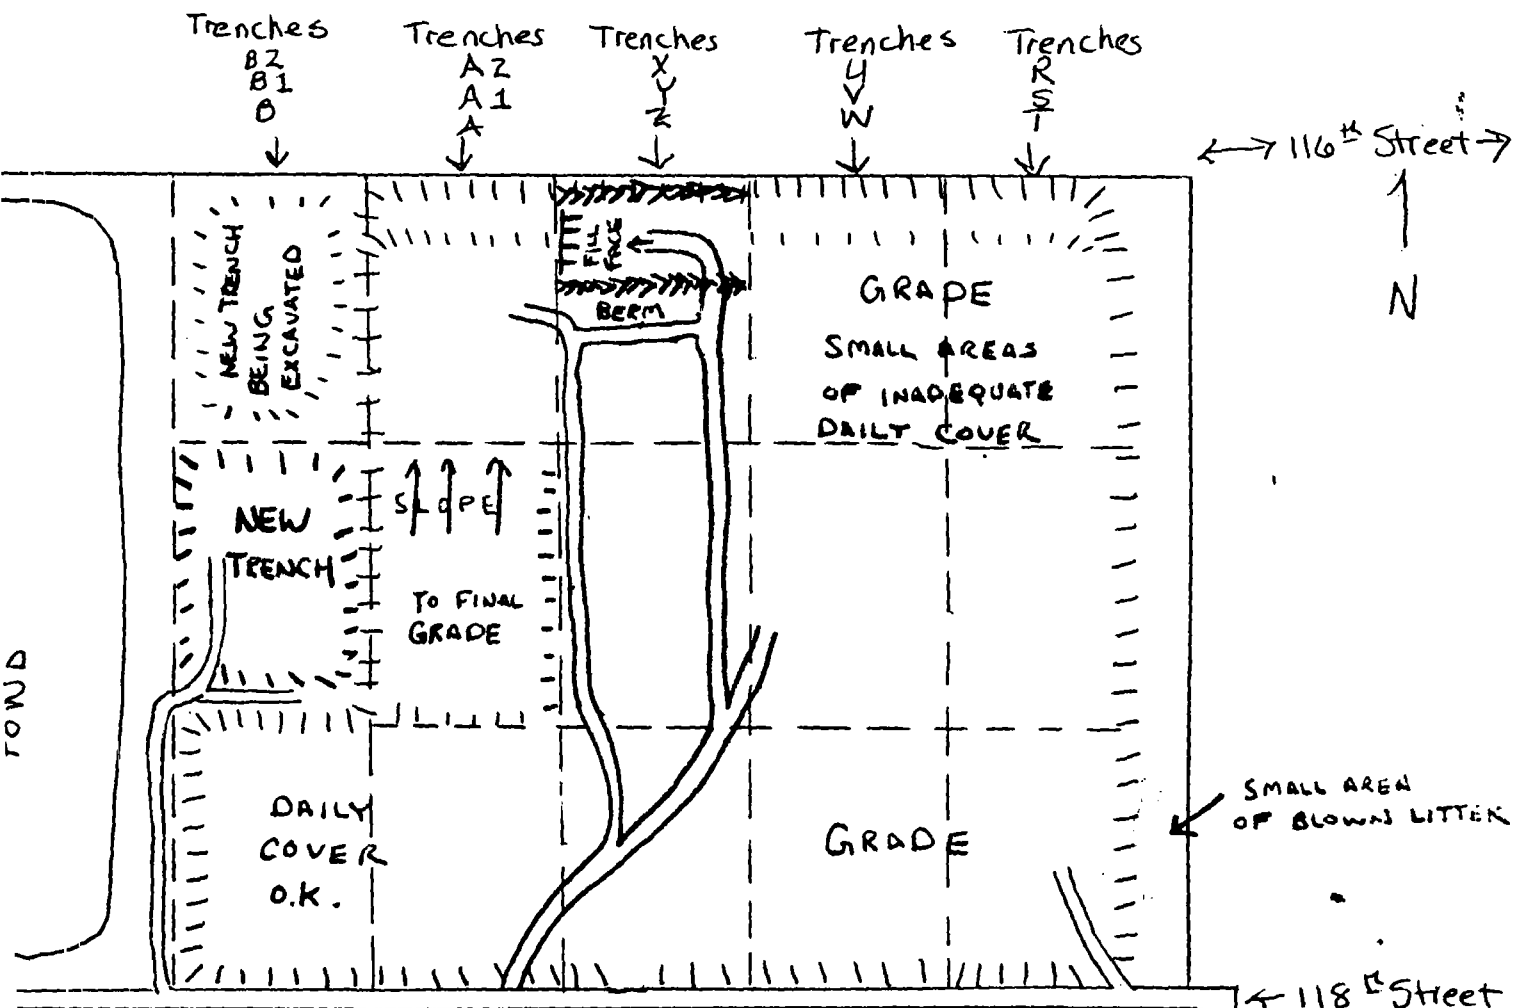 Trenches
B2
B1
B
Trenches
A2
A1
A
Trenches
X
Y
Z
Trenches
U
V
W
Trenches
R
S
T
116th Street
N
NEW TRENCH
BEING
EXCAVATED
FILL
FACE
BERM
GRADE
SMALL AREAS
OF INADEQUATE
DAILY COVER
NEW
TRENCH
SLOPE
TO FINAL
GRADE
POND
DAILY
COVER
O.K.
GRADE
SMALL AREA
OF BLOWN LITTER
118th Street